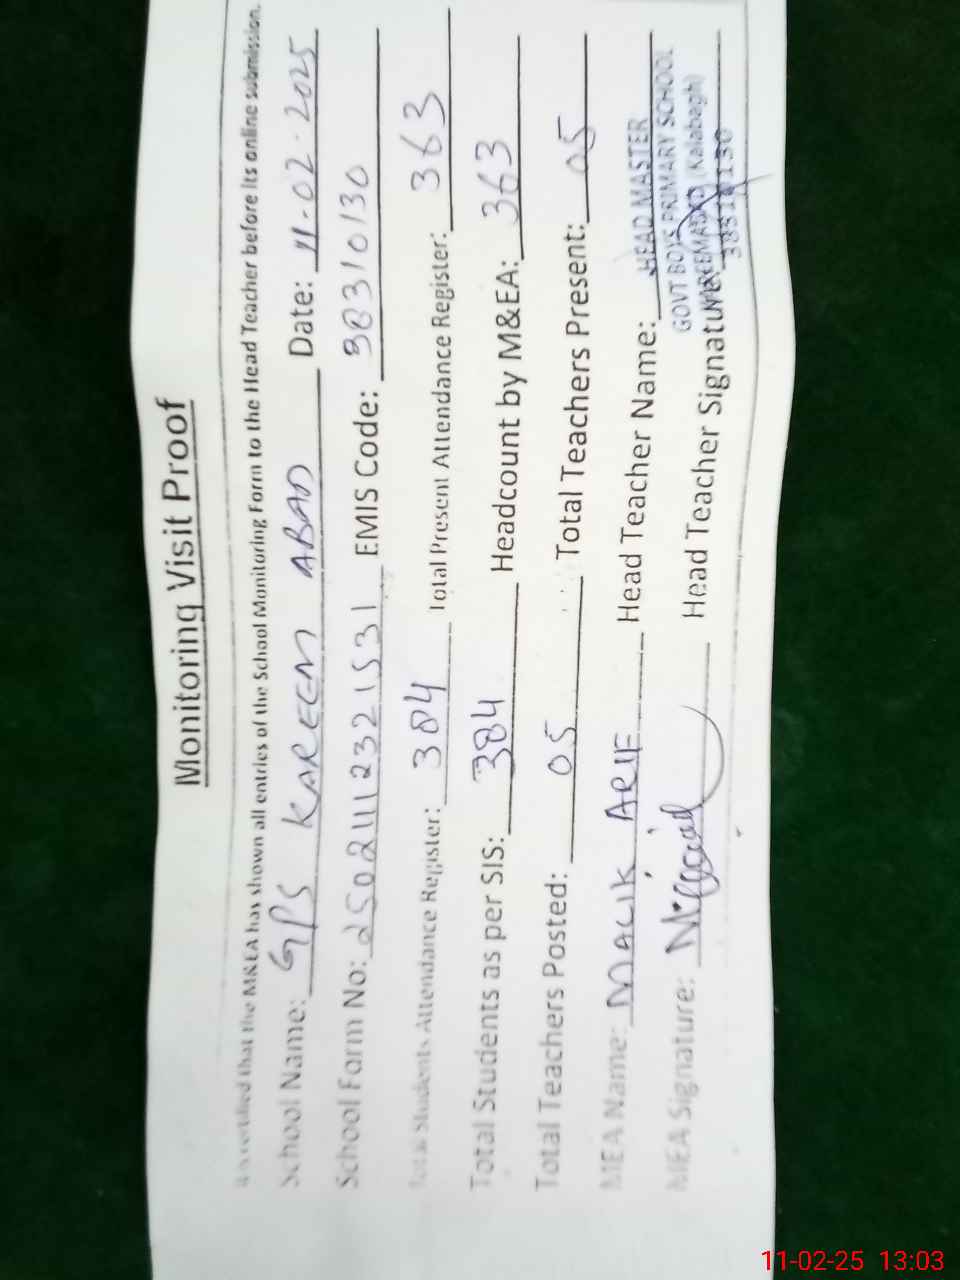 Monitoring Visit Proof
It is certified that the M&EA has shown all entries of the School Monitoring Form to the Head Teacher before its online submission.
School Name: GPS KAREEM ABAD Date: 11-02-2025
School Form No: 25021112321531 EMIS Code: 38310130
Total Students Attendance Register: 384 Total Present Attendance Register: 363
Total Students as per SIS: 384 Headcount by M&EA: 363
Total Teachers Posted: 05 Total Teachers Present: 05
MEA Name: MALIK ARIF Head Teacher Name: HEAD MASTER
GOVT BOYS PRIMARY SCHOOL
(Kalabagh)
MEA Signature: Head Teacher Signature: 38310130
11-02-25 13:03